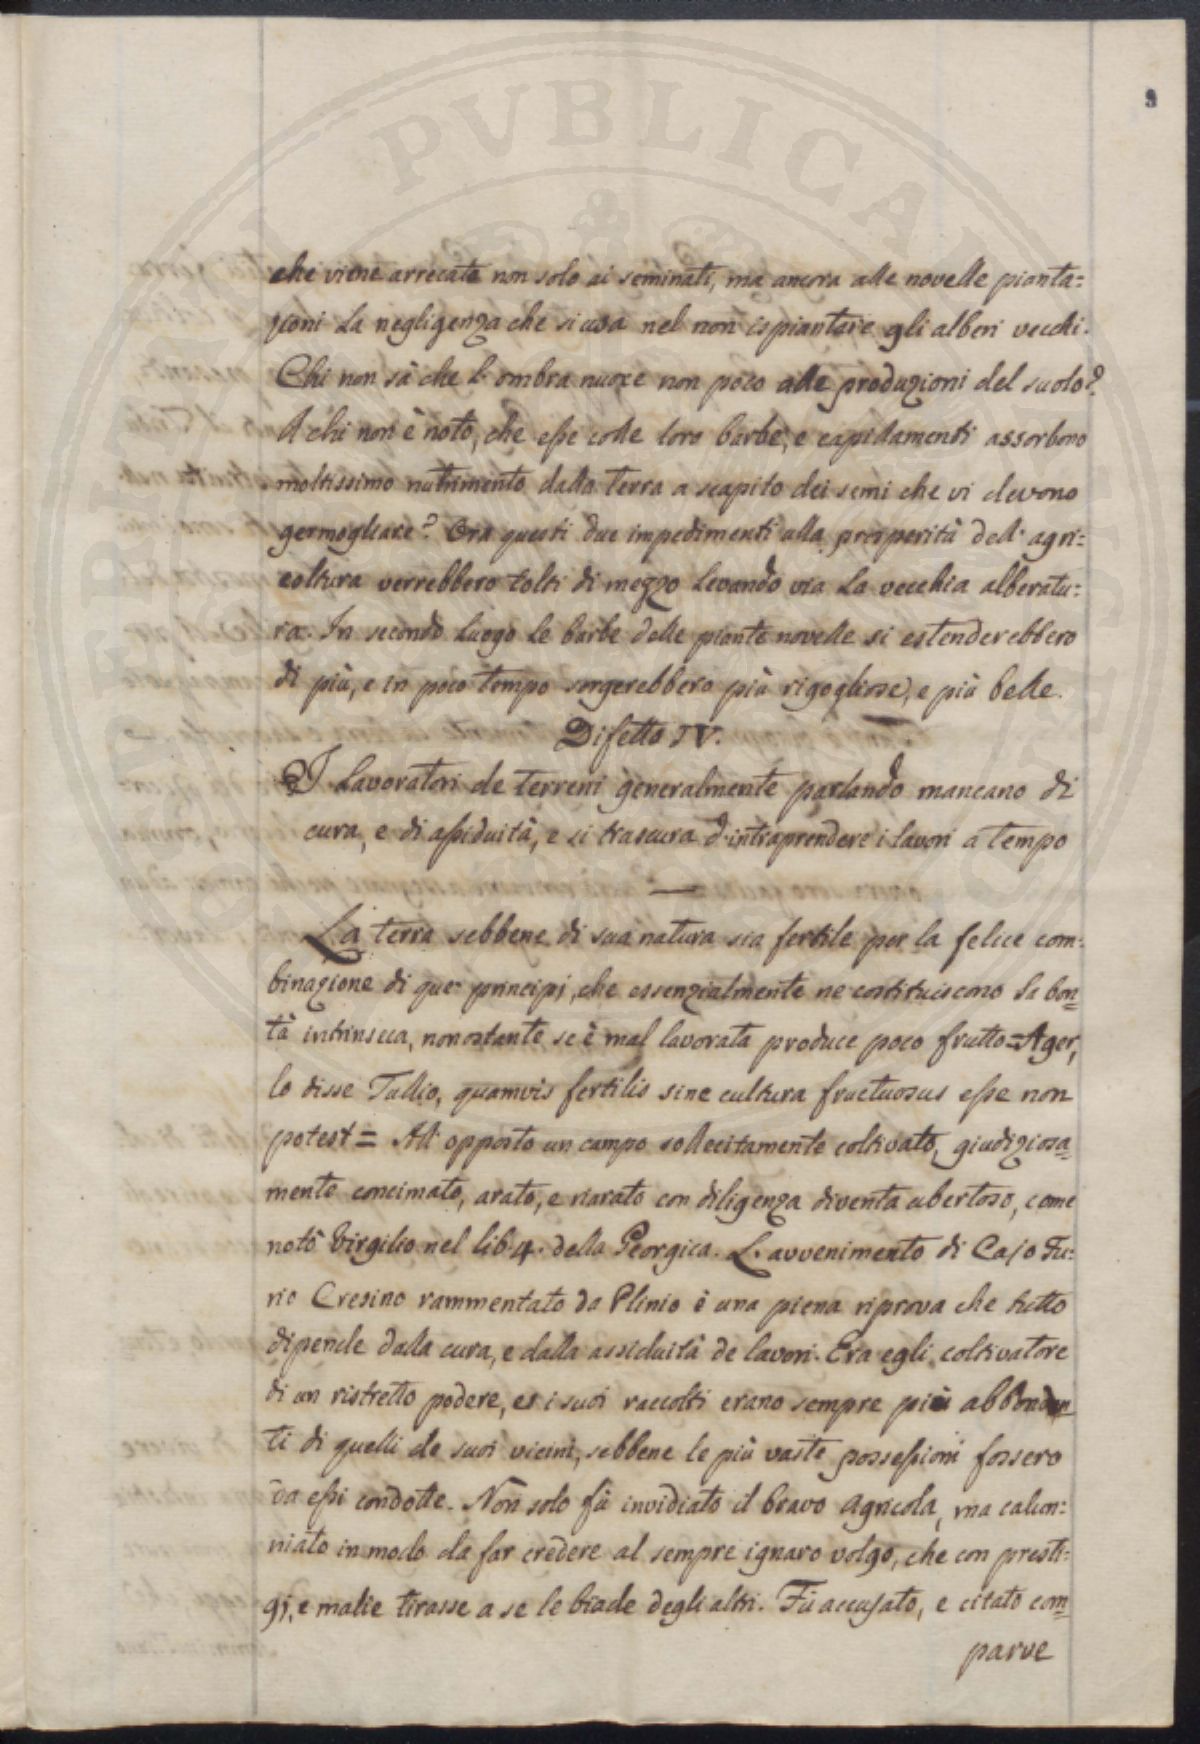 9
che viene arrecata non solo ai seminati, ma ancora alle novelle pianta=
zioni la negligenza che si usa nel non ispiantare gli alberi vecchi.
Chi non sà che l'ombra nuoce non poco alle produzioni del suolo?
A chi non è noto, che esse colle loro barbe, e capillamenti assorbono
moltissimo nutrimento dalla terra a scapito dei semi che vi devono
germogliare? Ora questi due impedimenti alla prosperità dell'agri=
coltura verrebbero tolti di mezzo levando via la vecchia alberatu=
ra. In secondo luogo le barbe delle piante novelle si estenderebbero
di più, e in poco tempo sorgerebbero più rigogliose, e più belle.
Difetto IV.
I lavoratori de terreni generalmente parlando mancano di
cura, e di assiduità, e si trascura d'intraprendere i lavori a tempo
La terra sebbene di sua natura sia fertile per la felice com=
binazione di que' principj, che essenzialmente ne costituiscono la bon=
tà intrinseca, nonostante se è mal lavorata produce poco frutto = Ager,
lo disse Tullio, quamvis fertilis sine cultura fructuosus esse non
potest = All'opposto un campo sollecitamente coltivato, giudiziosa=
mente concimato, arato, e riarato con diligenza diventa ubertoso, come
notò Virgilio nel lib. 4. della Georgica. L'avvenimento di Cajo Fu=
rio Cresino rammentato da Plinio è una piena riprova che tutto
dipende dalla cura, e dalla assiduità de lavori. Era egli coltivatore
di un ristretto podere, e i suoi raccolti erano sempre più abbondan=
ti di quelli de suoi vicini, sebbene le più vaste possessioni fossero
da essi condotte. Non solo fù invidiato il bravo agricola, ma calun=
niato in modo da far credere al sempre ignaro volgo, che con presti=
gj, e malie tirasse a se le biade degli altri. Fù accusato, e citato com=
parve